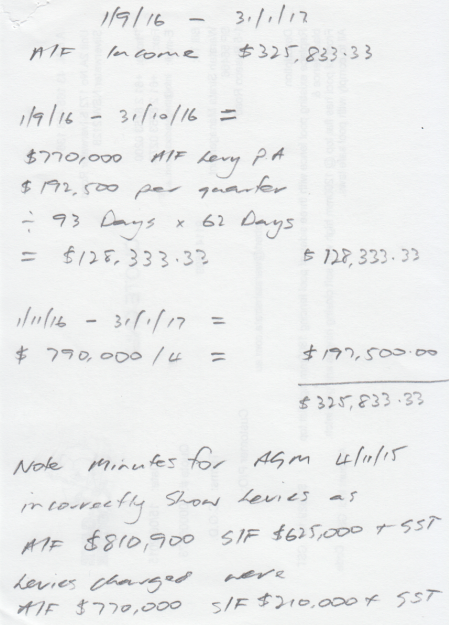 1/9/16 - 31/1/17
A/F Income $325,833.33
1/9/16 - 31/10/16 =
$770,000 A/F Levy PA
$192,500 per quarter
÷ 93 Days x 62 Days
= $128,333.33 $128,333.33
1/11/16 - 31/1/17 =
$790,000/4 = $197,500.00
$325,833.33
Note Minutes for AGM 4/11/15
incorrectly show Levies as
A/F $810,900 S/F $625,000 + GST
Levies charged were
A/F $770,000 S/F $210,000 + GST